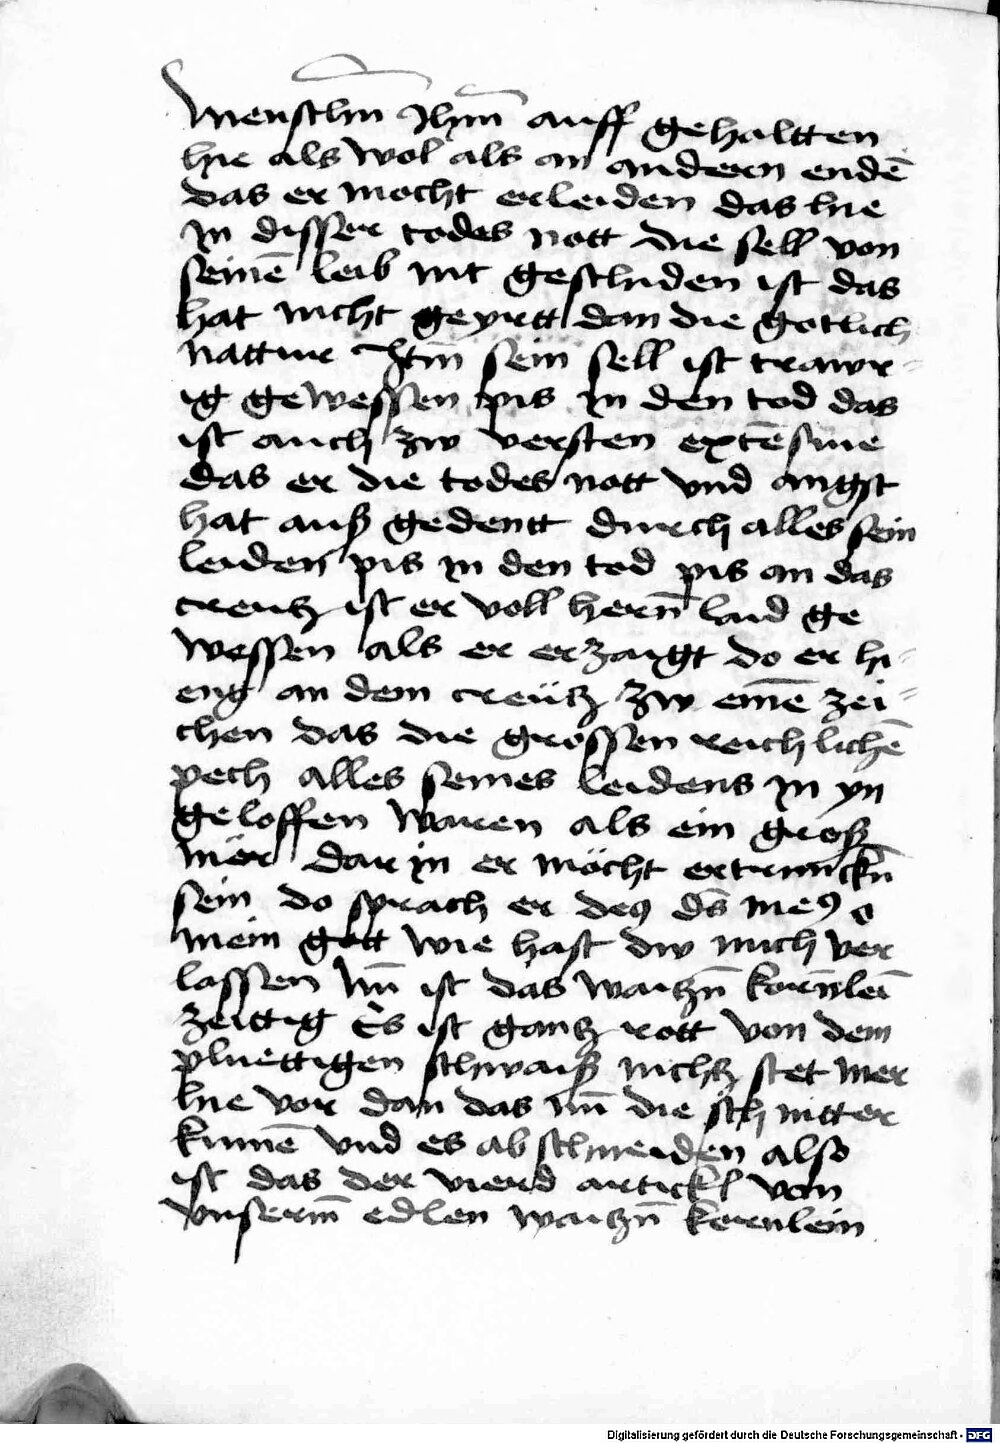 menschn̄ Jhm̄ auff gehaltten
hie als wol als an andern endē
das er mocht erleiden das hie
in disser todes nott die sell von
seinē leib nit geschiden ist das
hat nicht geyrtt dan die gotlich
nattur Itm̄ sein sell ist trawr=
ig gewessen pis in den tod das
ist auch zw versten extēsiue
das er die todes nott vnd angst
hat auß gedentt durch alles sein
leiden pis in den tod pis an das
creutz ist er voll hern̄ laid ge
wessen als er erzaigt do er hi=
eng an dem creütz zw einē zei=
chen das die grossen reichlichē
pech alles seines leidens in yn
geloffen waren als ein groß
mer dar in er möcht ertrunckn̄
sein do sprach er deꝯ ds̄ meꝯ o
mein gott wie hast dw mich ver
lassen nū ist das waitzn̄ kornlei̅
zeittig Es ist gantz rott von dem
pluettigen schwaiß nichtz stet mer
hie vor dan das nū die schnitter
kumē vnd es ab schneiden also
ist das der vierd artickl von
vnserm̄ edlen waitzn̄ kernlein
Digitalisierung gefördert durch die Deutsche Forschungsgemeinschaft - DFG